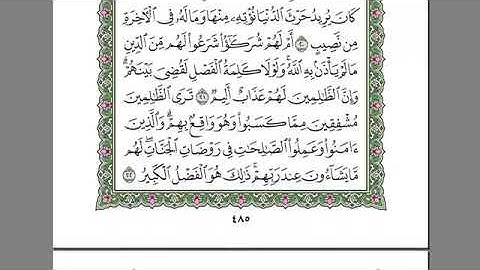 كَانَ يُرِيدُ حَرْثَ ٱلدُّنْيَا نُؤْتِهِۦ مِنْهَا وَمَا لَهُۥ فِى ٱلْـَٔاخِرَةِ
مِن نَّصِيبٍ ٢٠ أَمْ لَهُمْ شُرَكَٰٓؤُا۟ شَرَعُوا۟ لَهُم مِّنَ ٱلدِّينِ
مَا لَمْ يَأْذَنۢ بِهِ ٱللَّهُ ۚ وَلَوْلَا كَلِمَةُ ٱلْفَصْلِ لَقُضِىَ بَيْنَهُمْ ۗ
وَإِنَّ ٱلظَّٰلِمِينَ لَهُمْ عَذَابٌ أَلِيمٌ ٢١ تَرَى ٱلظَّٰلِمِينَ
مُشْفِقِينَ مِمَّا كَسَبُوا۟ وَهُوَ وَاقِعٌۢ بِهِمْ ۗ وَٱلَّذِينَ
ءَامَنُوا۟ وَعَمِلُوا۟ ٱلصَّٰلِحَٰتِ فِى رَوْضَاتِ ٱلْجَنَّاتِ ۖ لَهُم
مَّا يَشَآءُونَ عِندَ رَبِّهِمْ ۚ ذَٰلِكَ هُوَ ٱلْفَضْلُ ٱلْكَبِيرُ ٢٢
٤٨٥